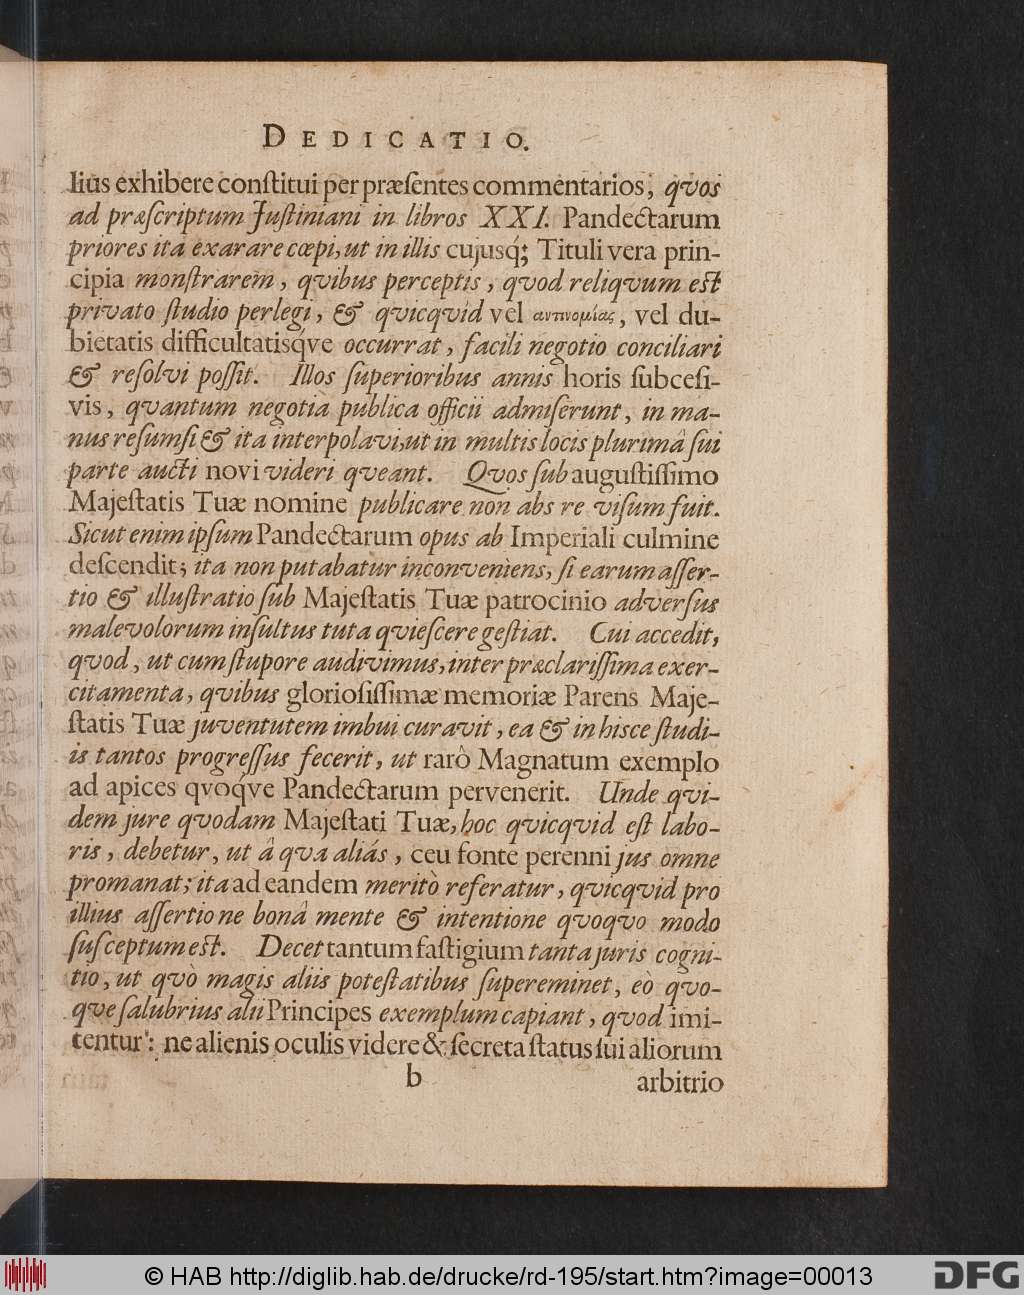 DEDICATIO.
lius exhibere conſtitui per præſentes commentarios, qvos
ad præſcriptum Juſtiniani in libros XXI. Pandectarum
priores ita exarare cœpi, ut in illis cujusq́; Tituli vera prin-
cipia monſtrarem, qvibus perceptis, qvod reliqvum eſt
privato ſtudio perlegi, & qvicqvid vel αντινομίας, vel du-
bietatis difficultatisq́ve occurrat, facili negotio conciliari
& reſolvi poſſit. Illos ſuperioribus annis horis ſubceſi-
vis, qvantum negotia publica officii admiſerunt, in ma-
nus reſumſi & ita interpolavi, ut in multis locis plurimâ ſui
parte aucti novi videri qveant. Qvos ſub auguſtiſſimo
Majeſtatis Tuæ nomine publicare non abs re viſum fuit.
Sicut enim ipſum Pandectarum opus ab Imperiali culmine
deſcendit; ita non putabatur inconveniens, ſi earum aſſer-
tio & illuſtratio ſub Majeſtatis Tuæ patrocinio adverſus
malevolorum inſultus tuta qvieſcere geſtiat. Cui accedit,
qvod, ut cum ſtupore audivimus, inter præclariſſima exer-
citamenta, qvibus glorioſiſſimæ memoriæ Parens Maje-
ſtatis Tuæ juventutem imbui curavit, ea & in hisce ſtudi-
is tantos progreſſus fecerit, ut rarò Magnatum exemplo
ad apices qvoq́ve Pandectarum pervenerit. Unde qvi-
dem jure qvodam Majeſtati Tuæ, hoc qvicqvid eſt labo-
ris, debetur, ut â qva aliás, ceu fonte perenni jus omne
promanat; ita ad eandem meritò referatur, qvicqvid pro
illius aſſertione bonâ mente & intentione qvoqvo modo
ſuſceptum eſt. Decet tantum faſtigium tanta juris cogni-
tio, ut qvò magis aliis poteſtatibus ſupereminet, eò qvo-
qve ſalubrius alii Principes exemplum capiant, qvod imi-
tentur: ne alienis oculis videre & ſecreta ſtatus ſui aliorum
b
arbitrio
© HAB http://diglib.hab.de/drucke/rd-195/start.htm?image=00013
DFG